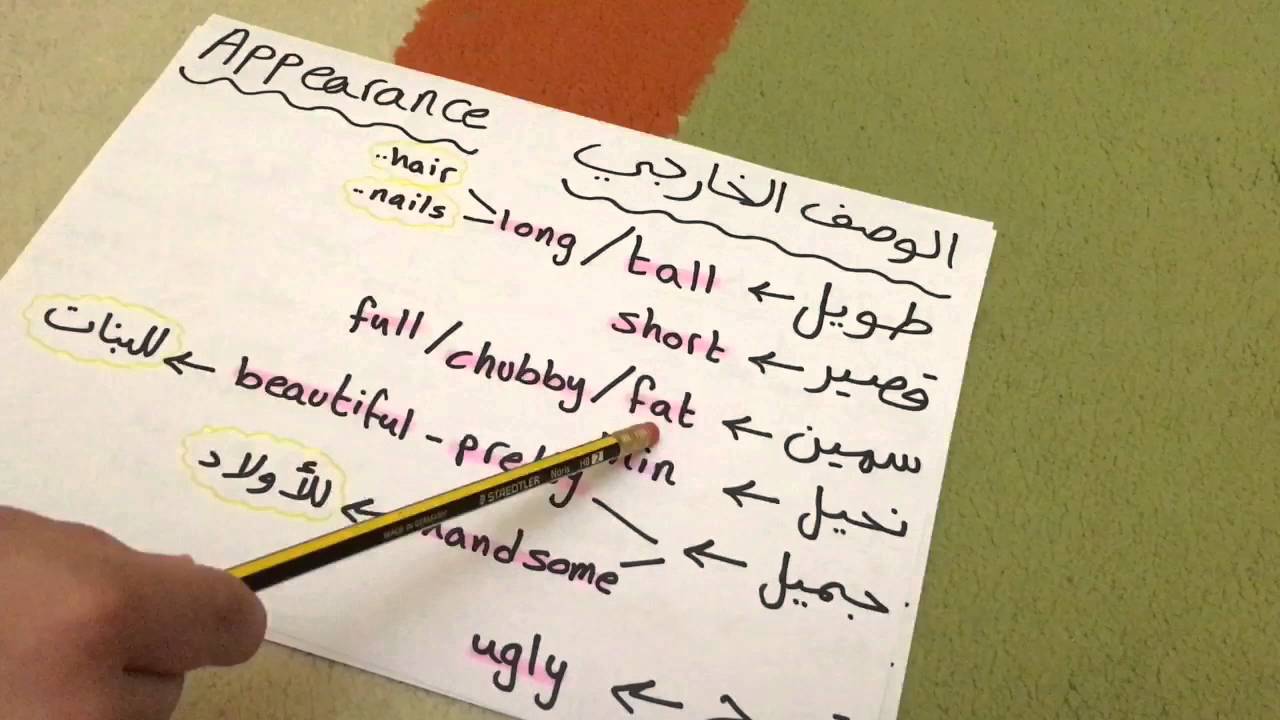 Appearance
الوصف الخارجي
..hair
..nails
طويل ← long / tall
قصير ← short
سمين ← full / chubby / fat
نحيل ←
جميل ← beautiful - pretty → للبنات
handsome → للأولاد
ugly ←
STAEDTLER Noris HB 2
MADE IN GERMANY